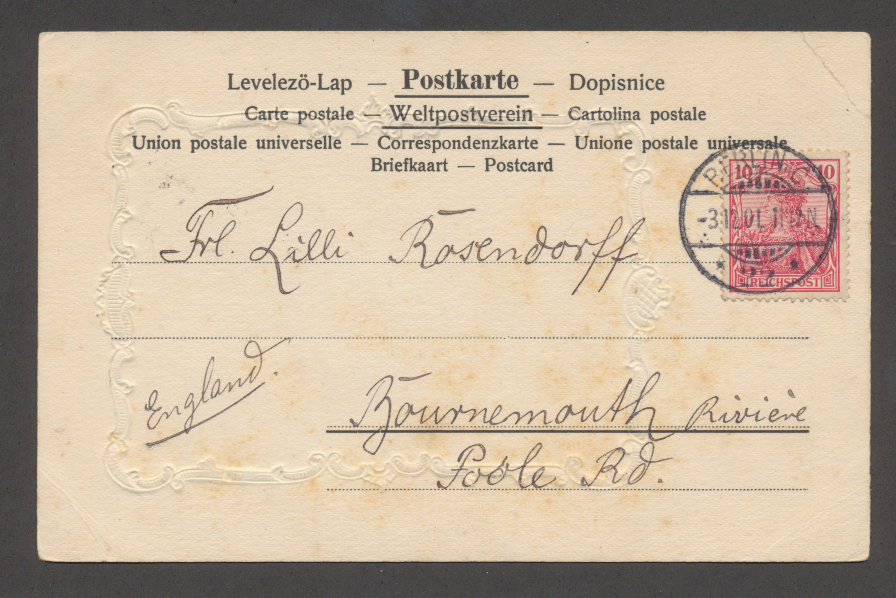 Levelezö-Lap — Postkarte — Dopisnice
Carte postale — Weltpostverein — Cartolina postale
Union postale universelle — Correspondenzkarte — Unione postale universale
Briefkaart — Postcard
BERLIN C
10 10
-3.12.01. 11-12N.
REICHSPOST
Frl. Lilli Rosendorff
England.
Bournemouth Riviére
Poole Rd.